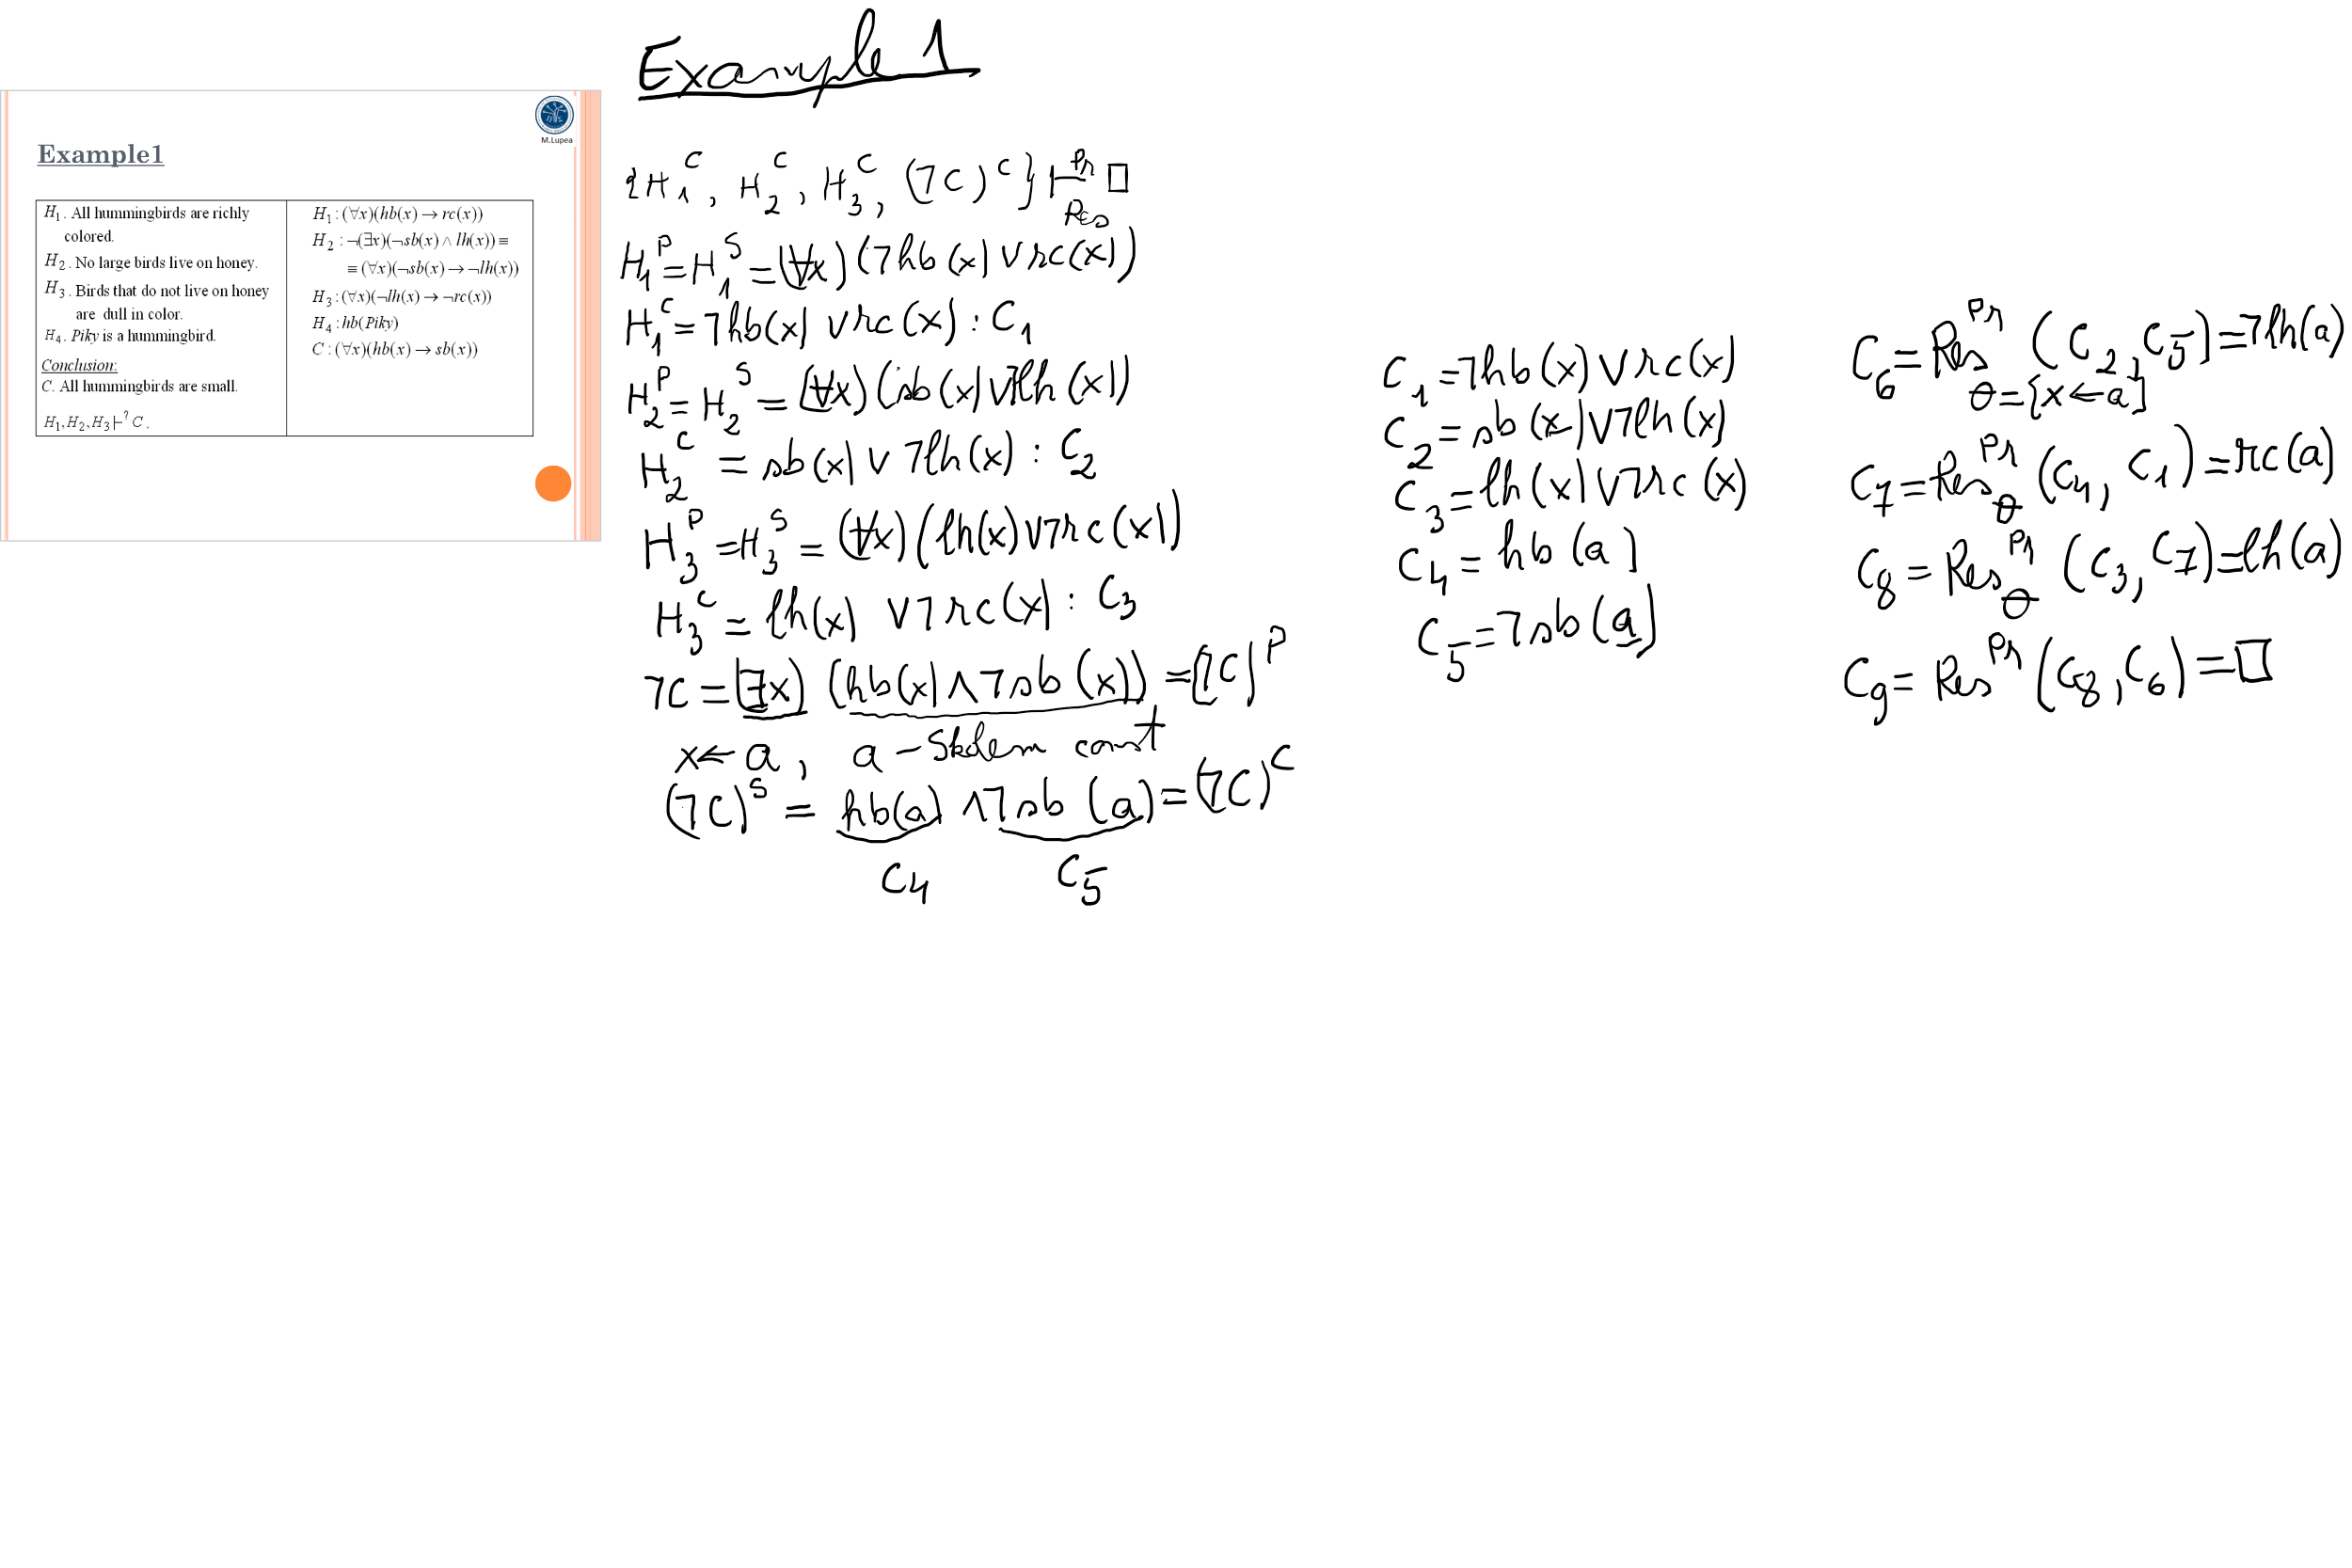 Example 1
M.Lupea
Example1
H₁. All hummingbirds are richly
colored.
H₂. No large birds live on honey.
H₃. Birds that do not live on honey
are dull in color.
H₄. Piky is a hummingbird.
Conclusion:
C. All hummingbirds are small.
H₁, H₂, H₃ ⊢? C.
H₁ : (∀x)(hb(x) → rc(x))
H₂ : ¬(∃x)(¬sb(x) ∧ lh(x)) ≡
≡ (∀x)(¬sb(x) → ¬lh(x))
H₃ : (∀x)(¬lh(x) → ¬rc(x))
H₄ : hb(Piky)
C : (∀x)(hb(x) → sb(x))
{H₁ᶜ, H₂ᶜ, H₃ᶜ, (¬C)ᶜ} ⊢ᴾʳ_Res □
H₁ᴾ = H₁ˢ = (∀x)(¬hb(x) ∨ rc(x))
H₁ᶜ = ¬hb(x) ∨ rc(x) : C₁
H₂ᴾ = H₂ˢ = (∀x)(sb(x) ∨ ¬lh(x))
H₂ᶜ = sb(x) ∨ ¬lh(x) : C₂
H₃ᴾ = H₃ˢ = (∀x)(lh(x) ∨ ¬rc(x))
H₃ᶜ = lh(x) ∨ ¬rc(x) : C₃
¬C = (∃x)(hb(x) ∧ ¬sb(x)) = (¬C)ᴾ
x ← a, a – Skolem const
(¬C)ˢ = hb(a) ∧ ¬sb(a) = (¬C)ᶜ
C₄ C₅
C₁ = ¬hb(x) ∨ rc(x)
C₂ = sb(x) ∨ ¬lh(x)
C₃ = lh(x) ∨ ¬rc(x)
C₄ = hb(a)
C₅ = ¬sb(a)
C₆ = Resᴾʳ (C₂, C₅) = ¬lh(a)
θ = {x ← a}
C₇ = Resᴾʳ_θ (C₄, C₁) = rc(a)
C₈ = Resᴾʳ_θ (C₃, C₇) = lh(a)
C₉ = Resᴾʳ (C₈, C₆) = □